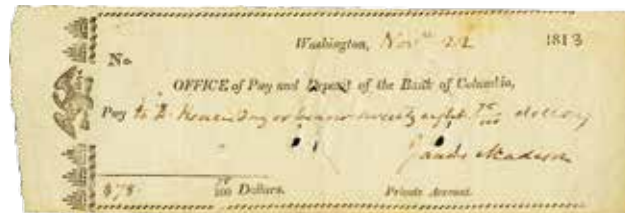 Washington, Nov.r 22 1813
No.
OFFICE of Pay and Deposit of the Bank of Columbia,
Pay to or bearer seventy eight 75/100 dollars
James Madison
$78. 75/100 Dollars. Private Account.